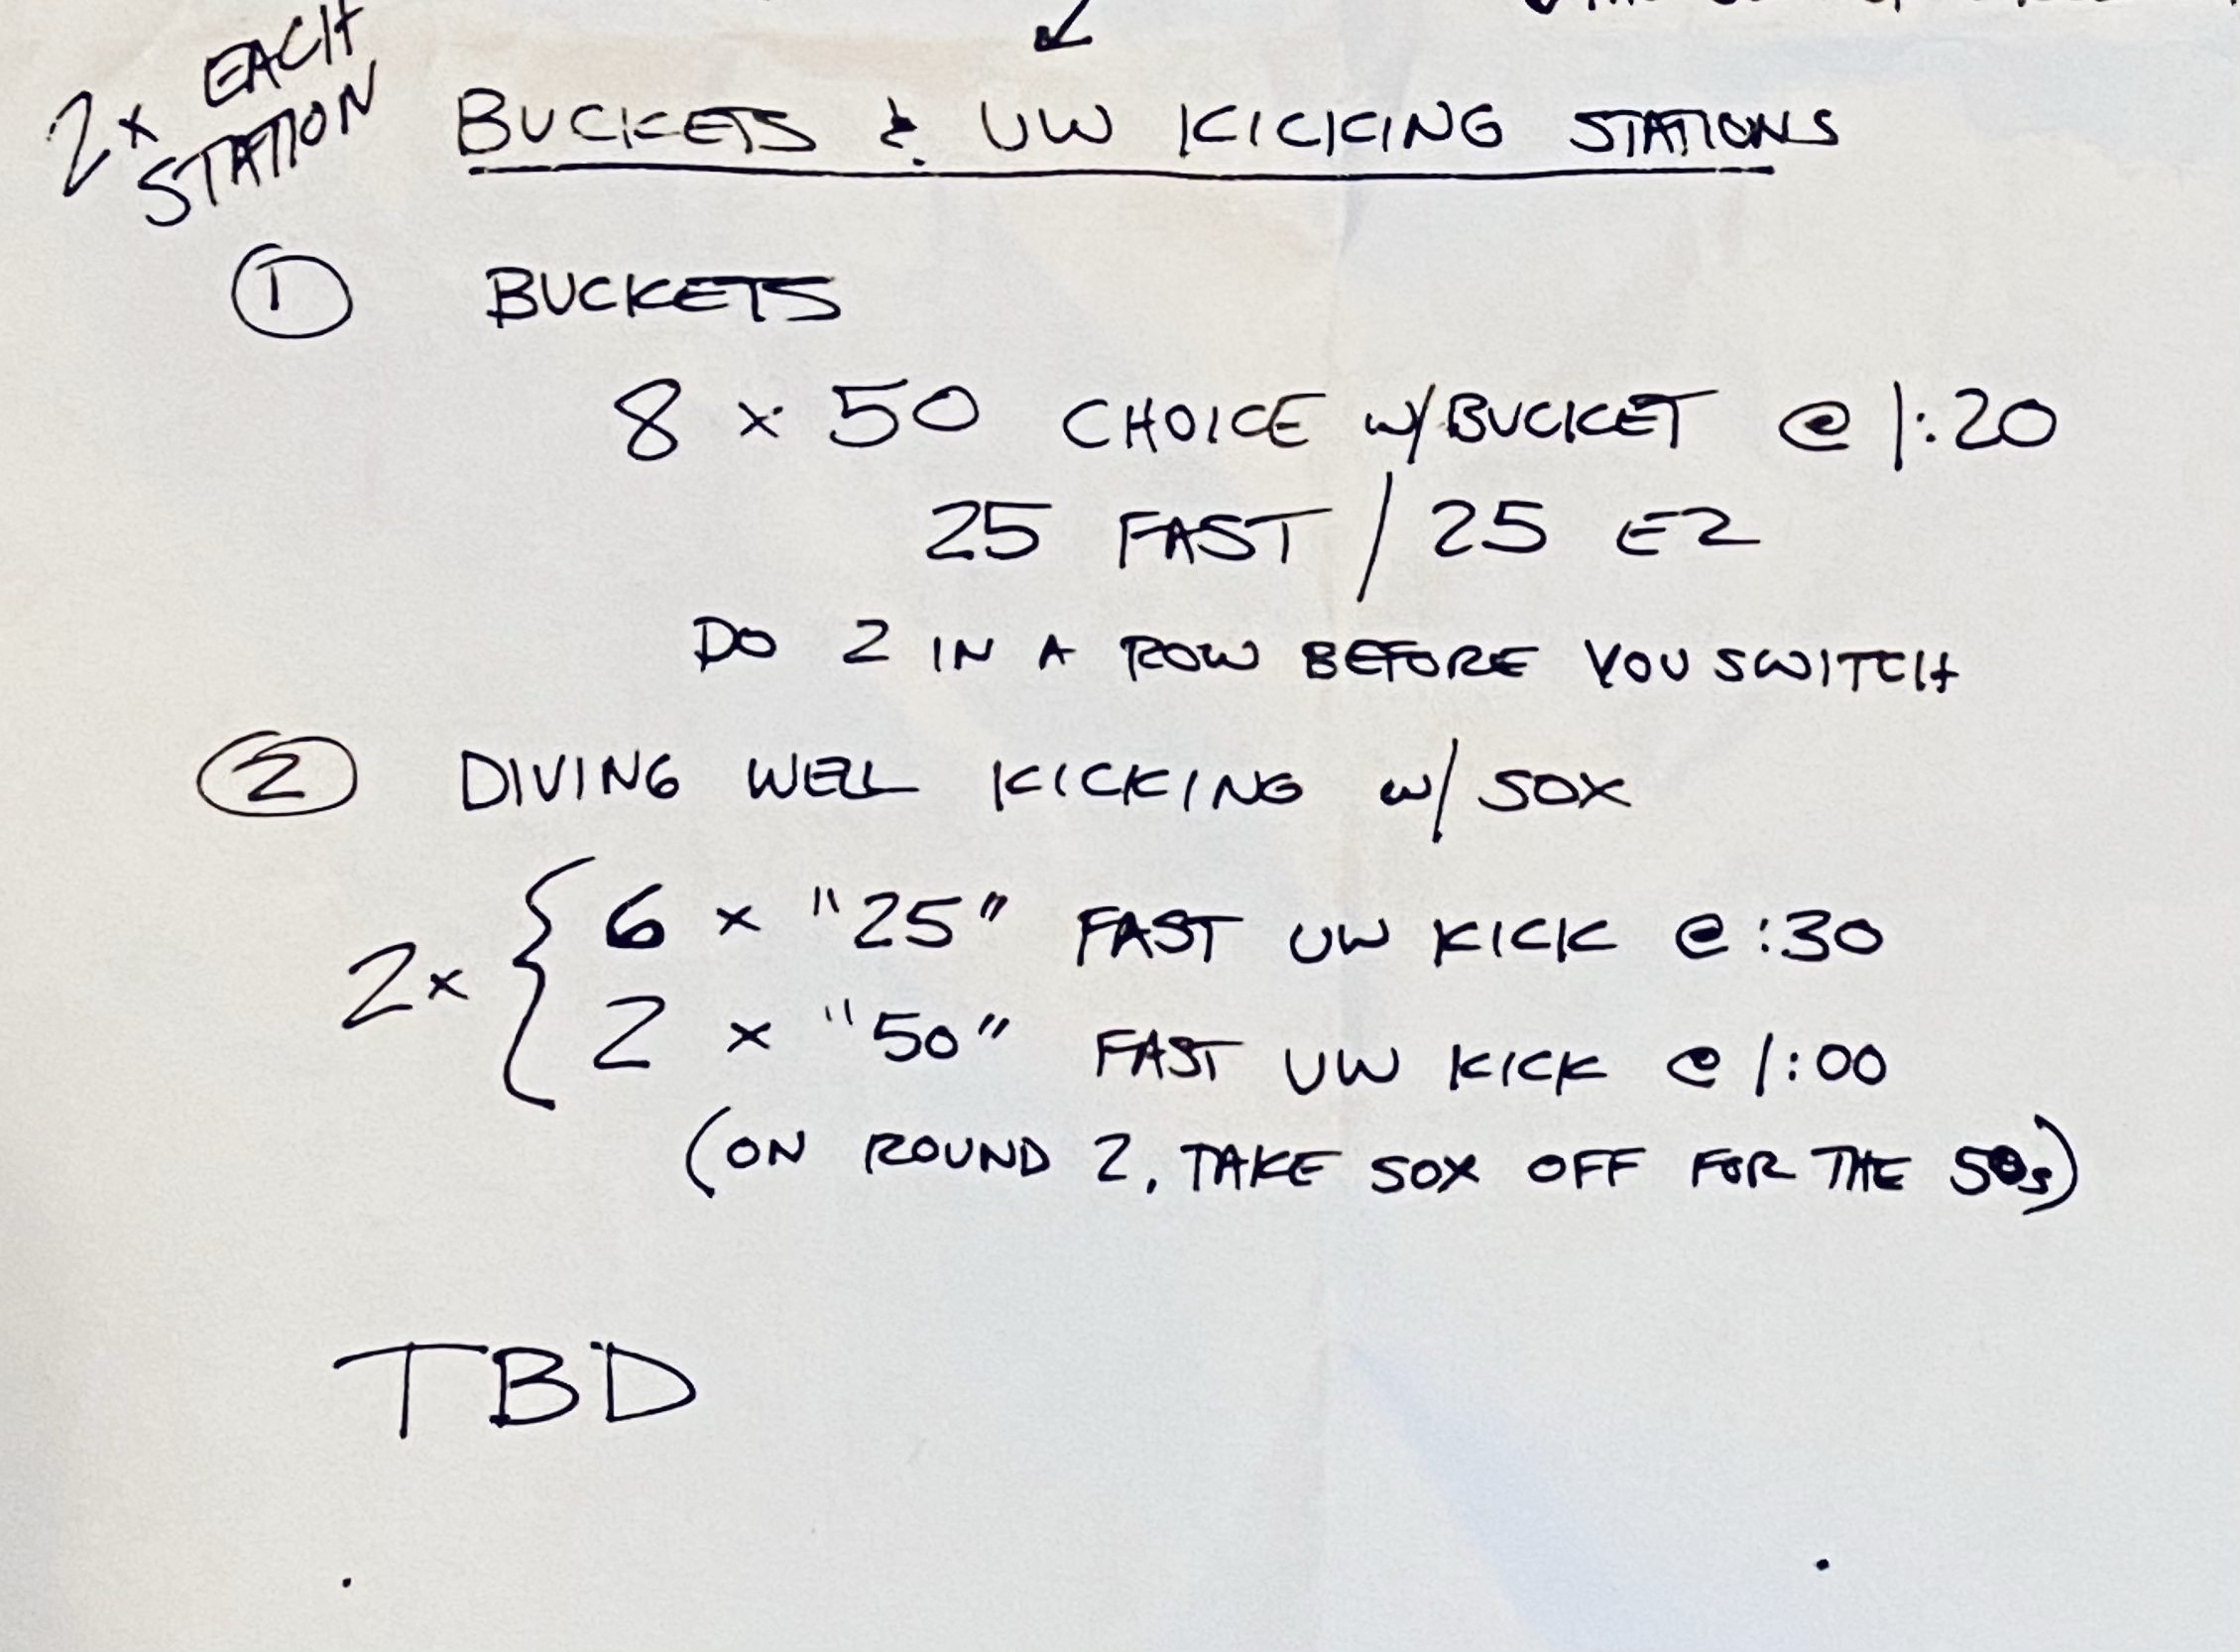 2x EACH
STATION
BUCKETS & UW KICKING STATIONS
① BUCKETS
8 x 50 CHOICE w/BUCKET @ 1:20
25 FAST / 25 EZ
DO 2 IN A ROW BEFORE YOU SWITCH
② DIVING WELL KICKING w/ SOX
2x { 6 x "25" FAST UW KICK @ :30
2 x "50" FAST UW KICK @ 1:00
(ON ROUND 2, TAKE SOX OFF FOR THE 50s)
TBD